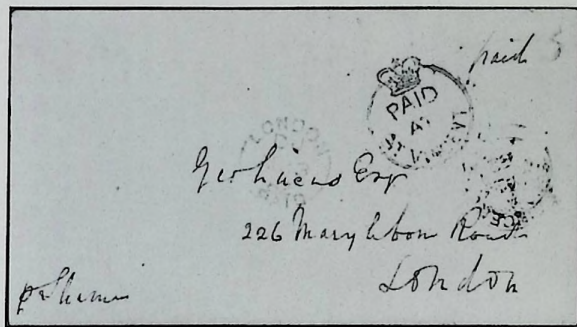 paid 5
PAID
AT
ST VINCENT
LONDON
PAID
Geo Lucas Esq
226 Marylebon Road
London